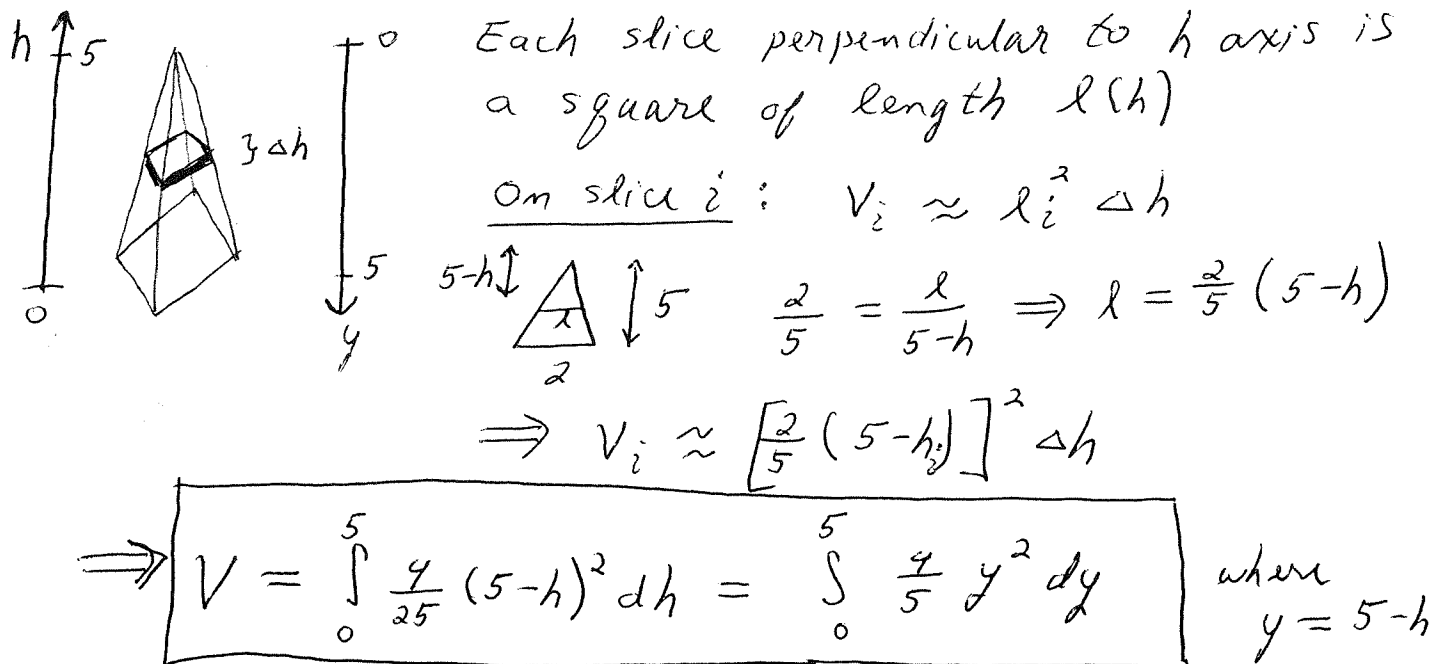 h 5 0 Each slice perpendicular to h axis is
a square of length l(h)
} Δh
On slice i : V_i ≈ l_i^2 Δh
0 5 y
5-h 5 l 2 2/5 = l/(5-h) ⇒ l = 2/5 (5-h)
⇒ V_i ≈ [2/5 (5-h_i)]^2 Δh
⇒ V = ∫_0^5 4/25 (5-h)^2 dh = ∫_0^5 4/5 y^2 dy where
y = 5-h